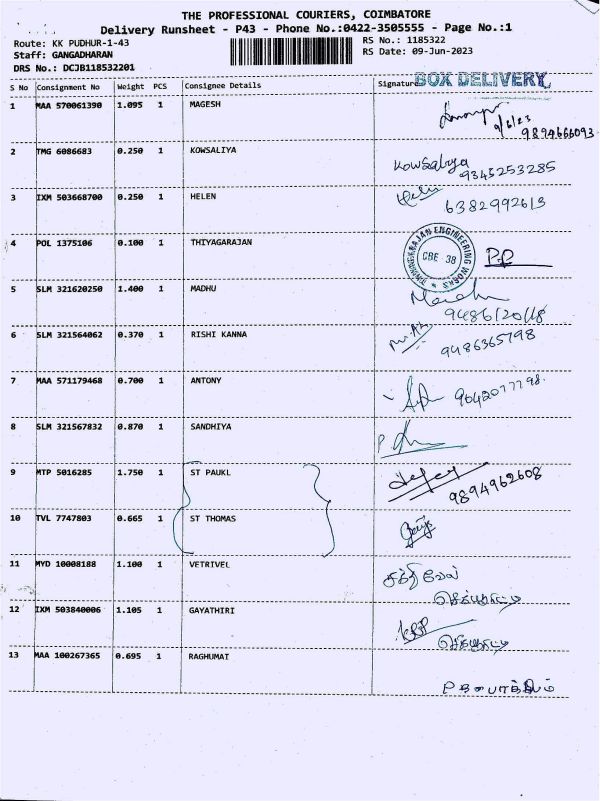 THE PROFESSIONAL COURIERS, COIMBATORE
Delivery Runsheet - P43 - Phone No.:0422-3505555 - Page No.:1
Route: KK PUDHUR-1-43 RS No.: 1185322
Staff: GANGADHARAN RS Date: 09-Jun-2023
DRS No.: DCJB118532201
S No Consignment No Weight PCS Consignee Details Signature BOX DELIVERY
1 MAA 570061390 1.095 1 MAGESH
9/6/23
9894666093
2 TMG 6086683 0.250 1 KOWSALIYA Kowsalya
9345253285
3 IXM 503668700 0.250 1 HELEN Helen
6382992613
4 POL 1375106 0.100 1 THIYAGARAJAN THIYAGARAJAN ENGINEERING WORKS CBE 38
5 SLM 321620250 1.400 1 MADHU
6 SLM 321564062 0.370 1 RISHI KANNA
9486365798
7 MAA 571179468 0.700 1 ANTONY
9042077798
8 SLM 321567832 0.870 1 SANDHIYA
9 MTP 5016285 1.750 1 ST PAUKL
9894962608
10 TVL 7747803 0.665 1 ST THOMAS
11 MYD 10008188 1.100 1 VETRIVEL
12 IXM 503840006 1.105 1 GAYATHIRI
13 MAA 100267365 0.695 1 RAGHUMAT